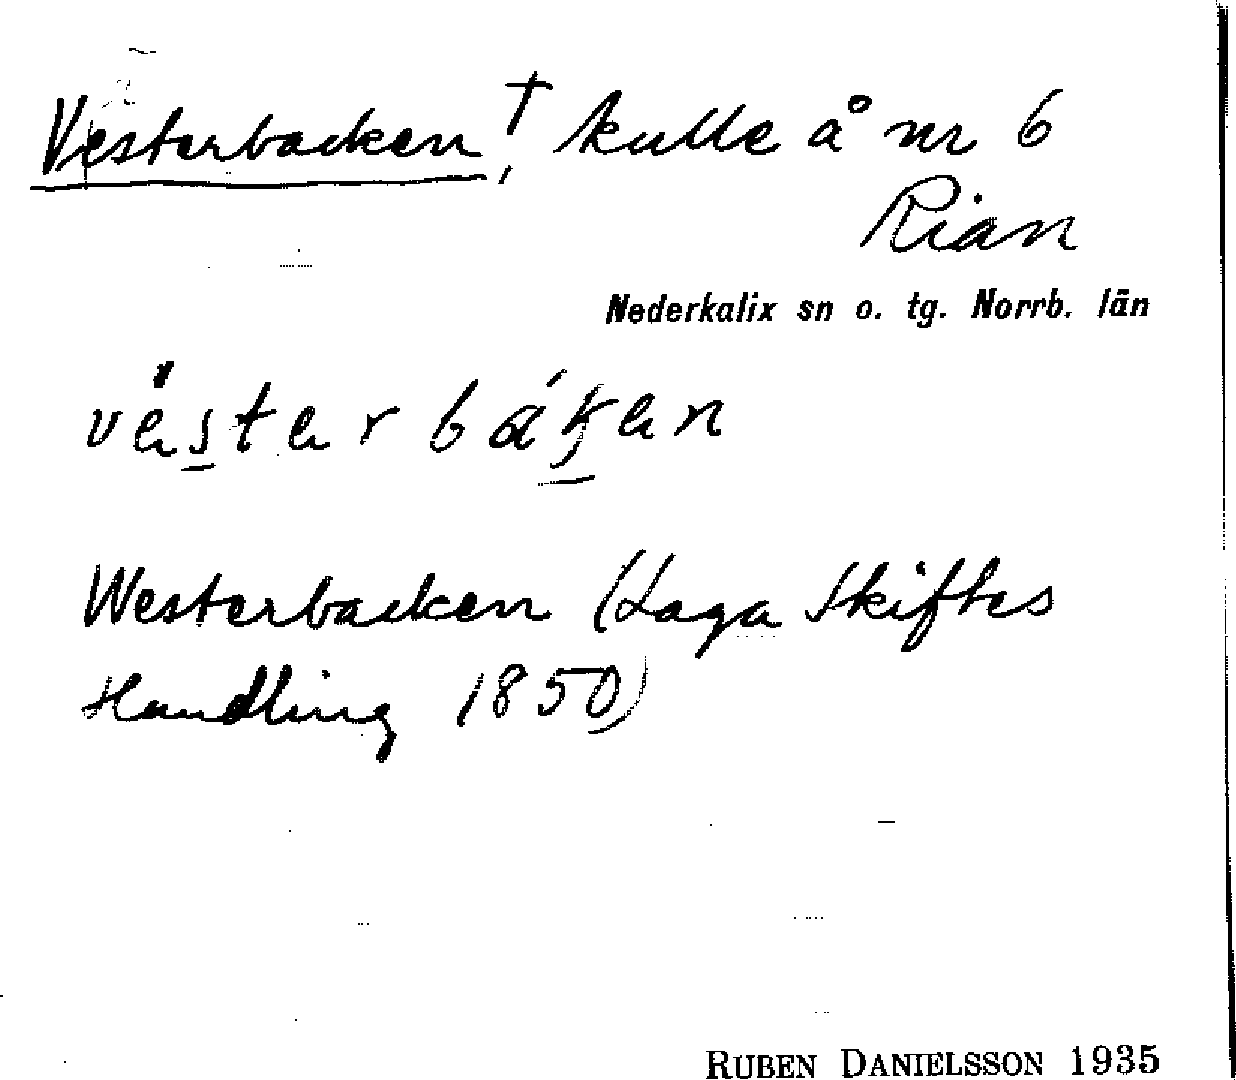 Vesterbacken,† kulle å nr 6
Rian
Nederkalix sn o. tg. Norrb. län
Westerbacken (Laga Skiftes
Handling 1850)
RUBEN DANIELSSON 1935